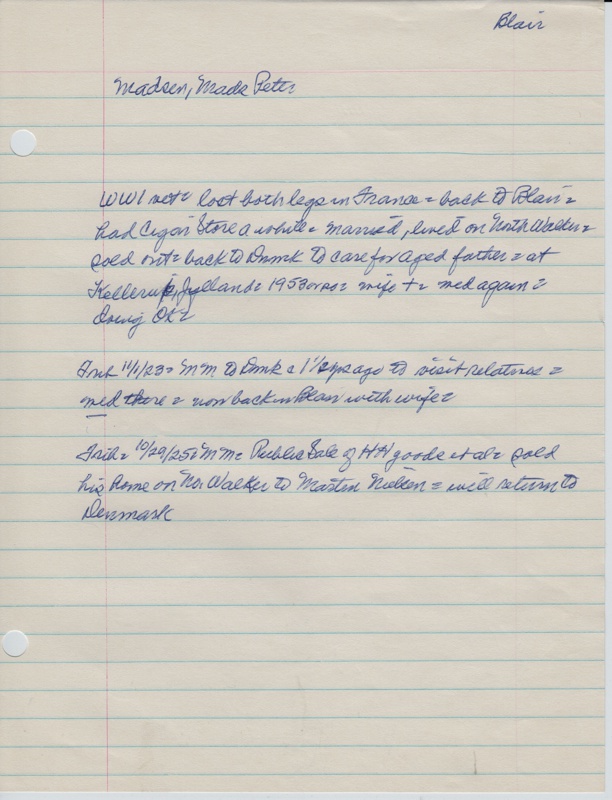 Blair
Madsen, Mads Peter
WW1 vet = lost both legs in France = back to Blair =
had Cigar Store a while = married, lived on North Walker =
sold out = back to Dnmk to care for aged father = at
Jylland = 1953 or so = wife + = med again =
doing OK =
Trib 11/1/23 = MM to Dmk 1 1/2 yrs ago to visit relatives =
med there = now back in Blair with wife =
Trib = 10/29/25 = MM = Public Sale of HH goods et al = sold
his home on No. Walker to Martin Nielsen = will return to
Denmark